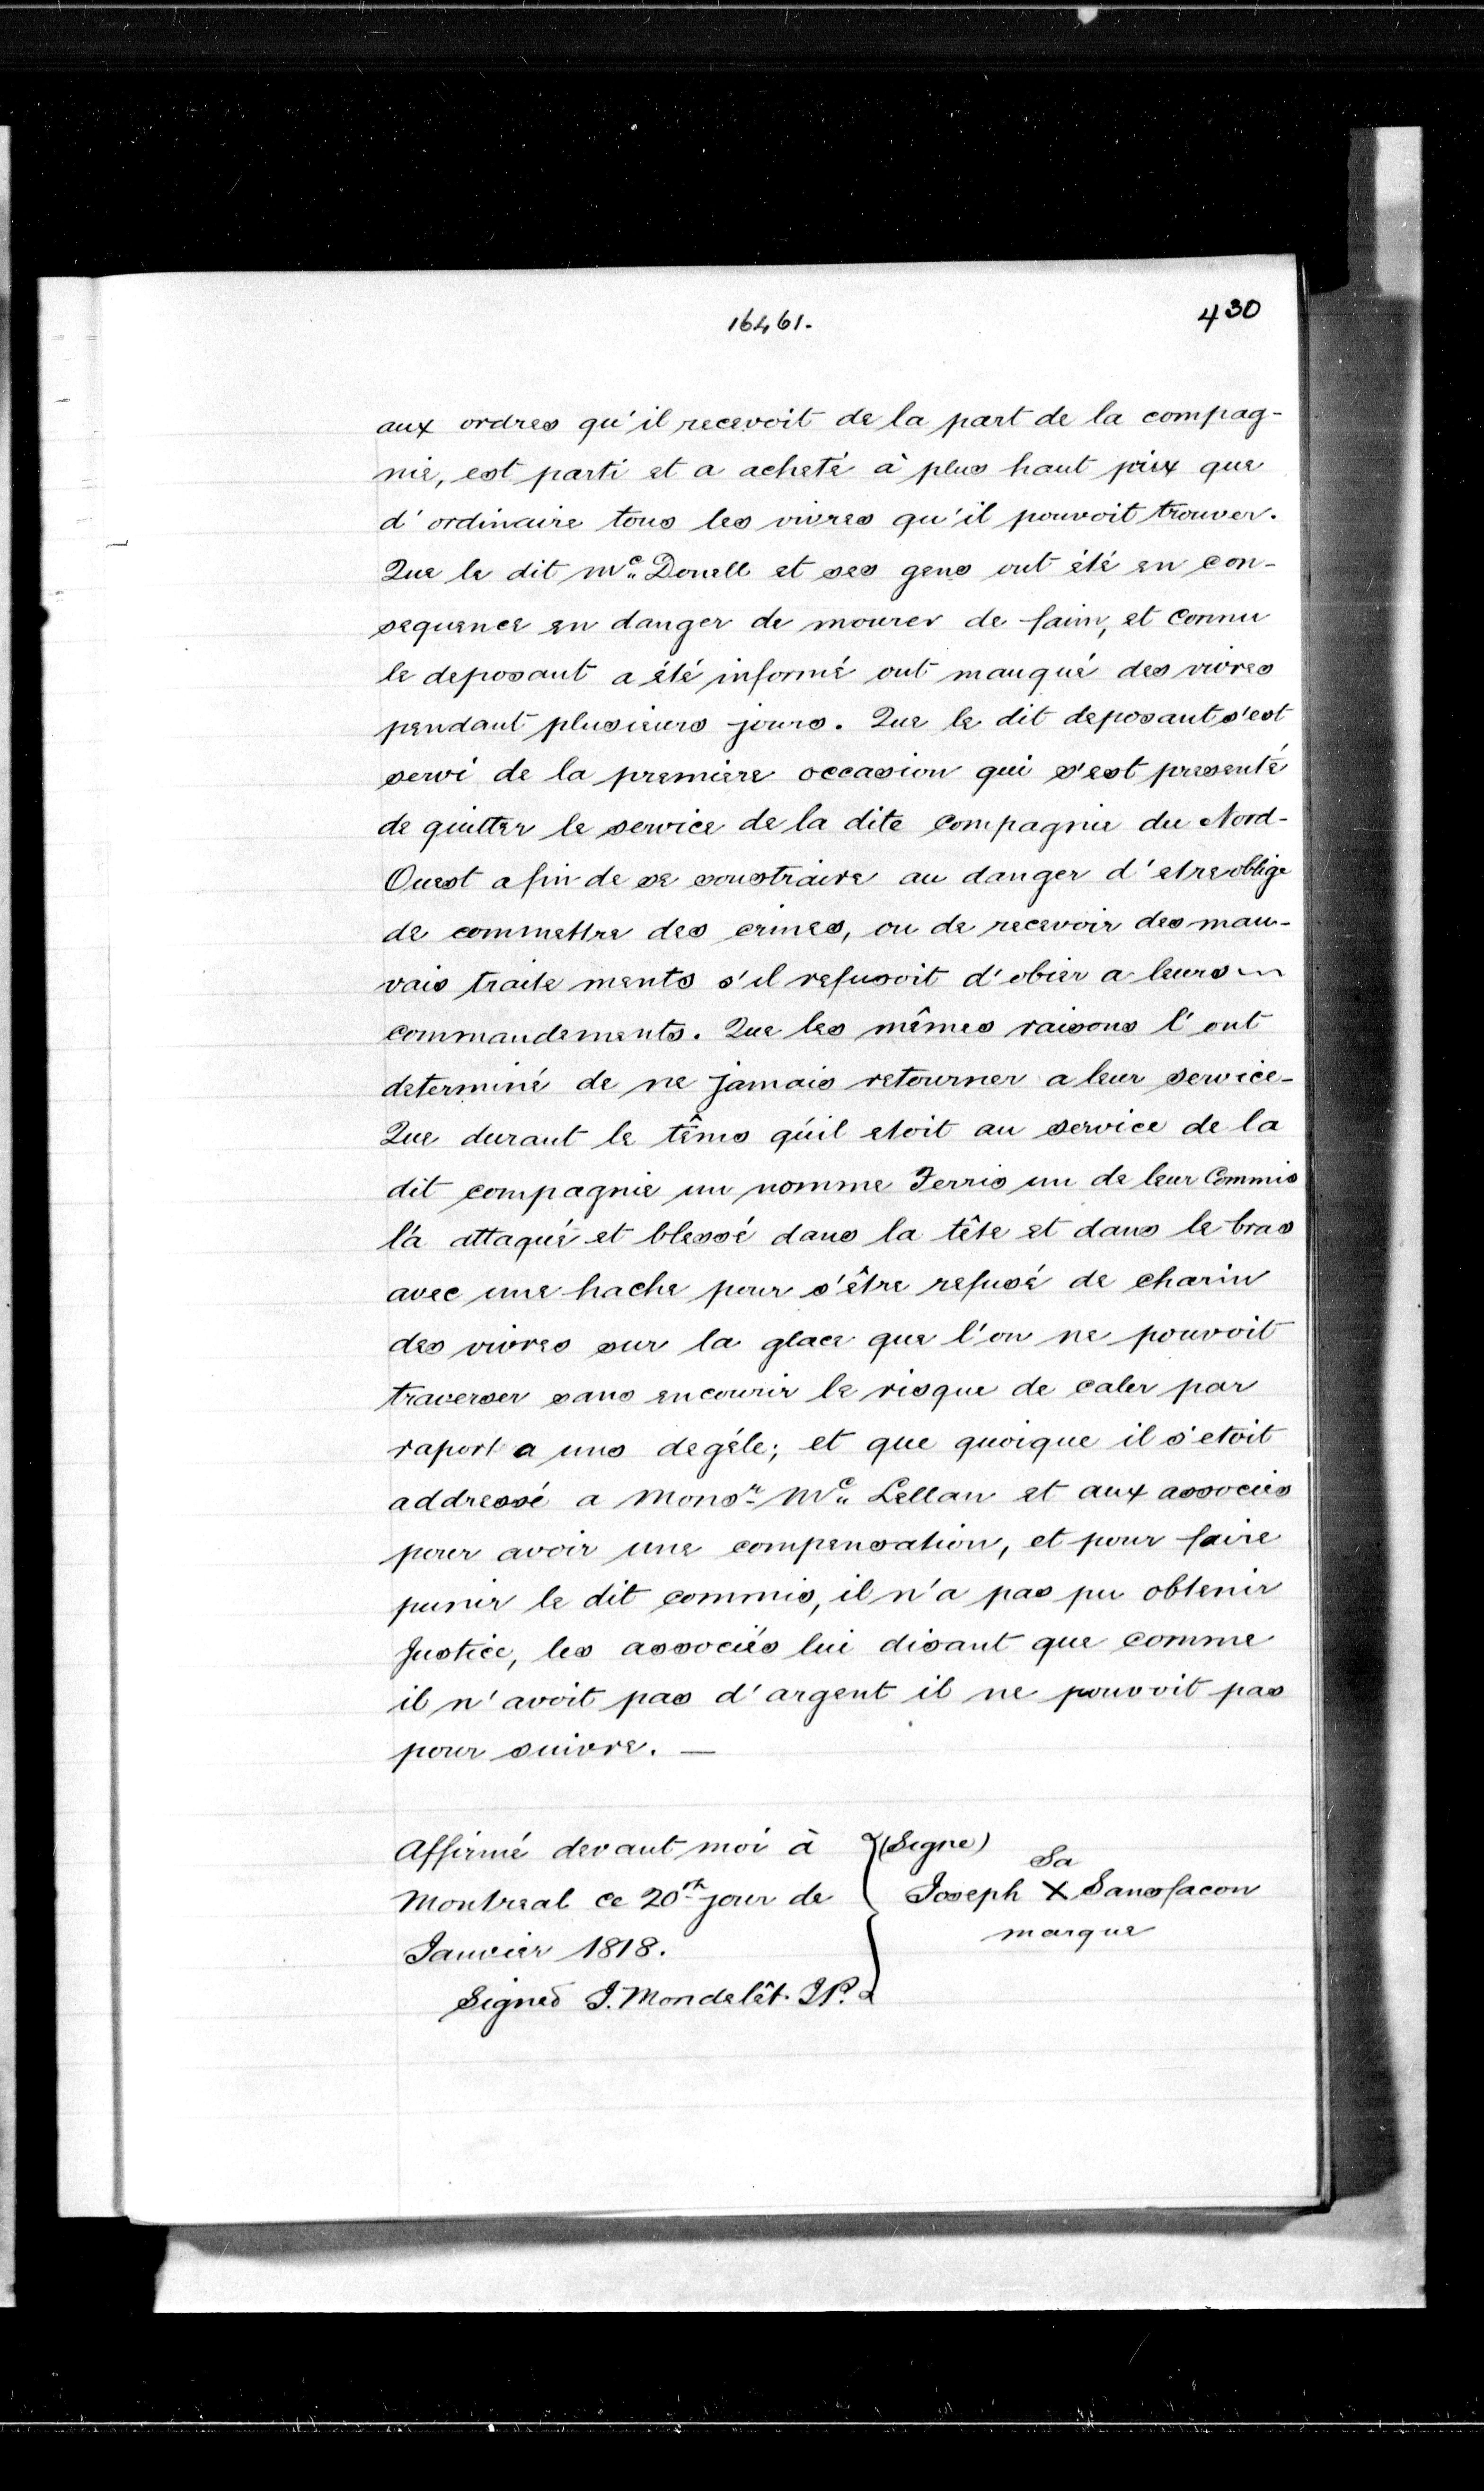 16461.
430
aux ordres qu'il recevoit de la part de la compag-
nie, est parti et a acheté à plus haut prix que
d'ordinaire tous les vivres qu'il pouvoit trouver.
Que le dit Mc Donell et ses gens ont été en con-
sequence en danger de mourer de faim, et connu
le deposant a été informé ont manqué des vivres
pendant plusieurs jours. Que le dit deposant s'est
servi de la premiere occasion qui s'est presenté
de quitter le service de la dite Compagnie du Nord-
Ouest afin de se soustraire au danger d'etre oblige
de commettre des crimes, ou de recevoir des mau-
vais traite ments s'il refusoit d'obier a leurs
commandements. Que les mêmes raisons l'ont
determiné de ne jamais retourner a leur service-
Que durant le têms qu'il etoit au service de la
dit compagnie un nomme Ferris un de leur Commis
l'a attaqué et blessé dans la tête et dans le bras
avec une hache pour s'être refusé de charin
des vivres sur la glace que l'on ne pouvoit
traverser sans encourir le risque de caler par
raport a uns degéle; et que quoique il s'etoit
addressé a Monsr Mc Lellan et aux associés
pour avoir une compensation, et pour faire
punir le dit commis, il n'a pas pu obtenir
Justice, les associés lui disant que comme
il n'avoit pas d'argent il ne pouvoit pas
pour suivre. —
Affirmé devant moi à
Montreal ce 20th jour de
Janvier 1818.
Signed J. Mondelêt. JP.
(Signe)
Sa
Joseph X Sansfacon
marque